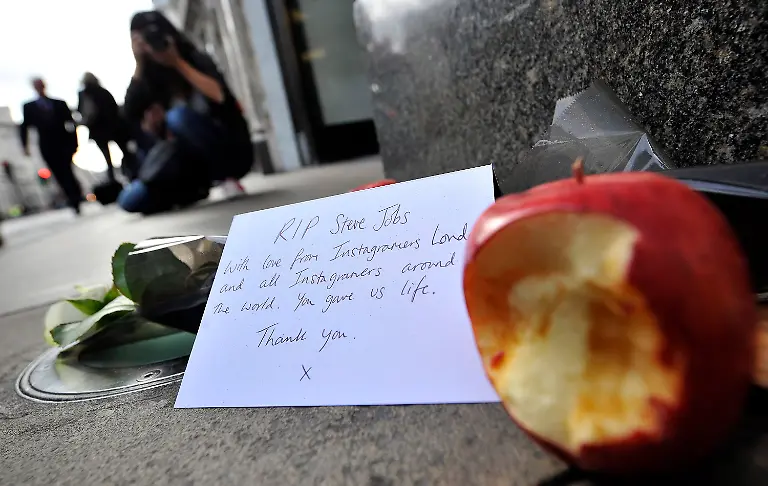 RIP Steve Jobs
With love from Instagramers Lond
and all Instagramers around
the world. You gave us life.
Thank you.
x